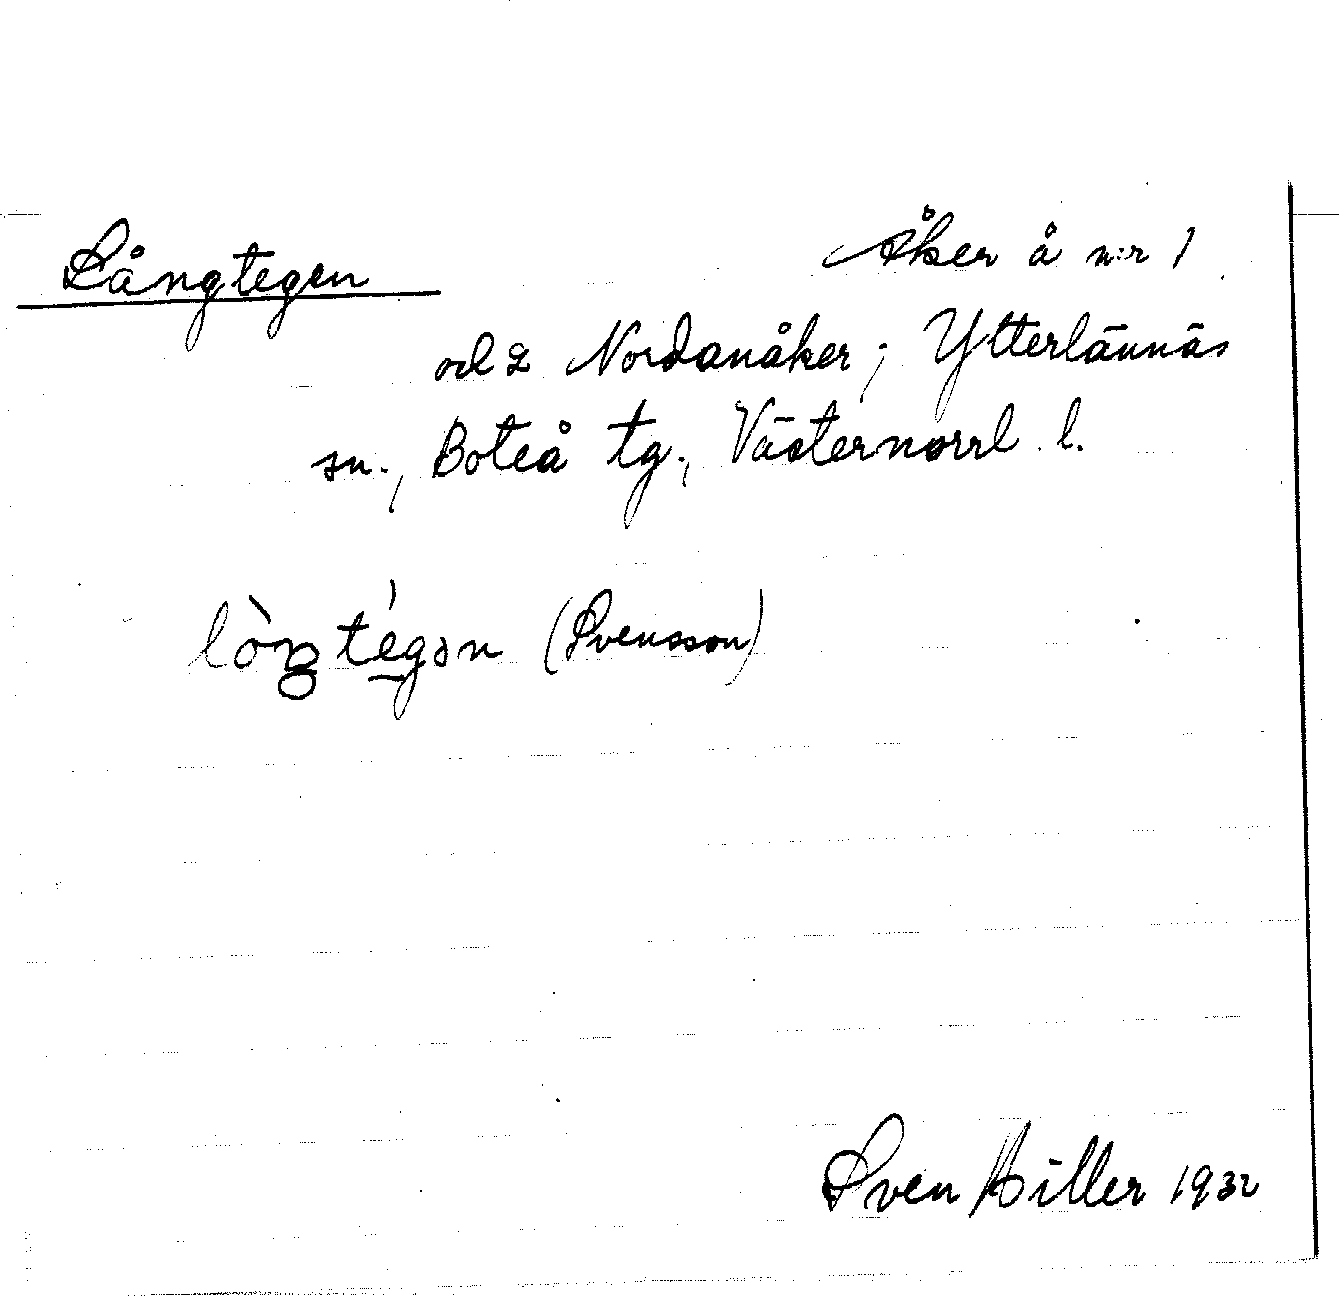 Långtegen
Åker å n:r 1
och 2 Nordanåker; Ytterlännäs
sn., Boteå tg., Västernorrl. l.
(Svensson)
Sven Hiller 1932